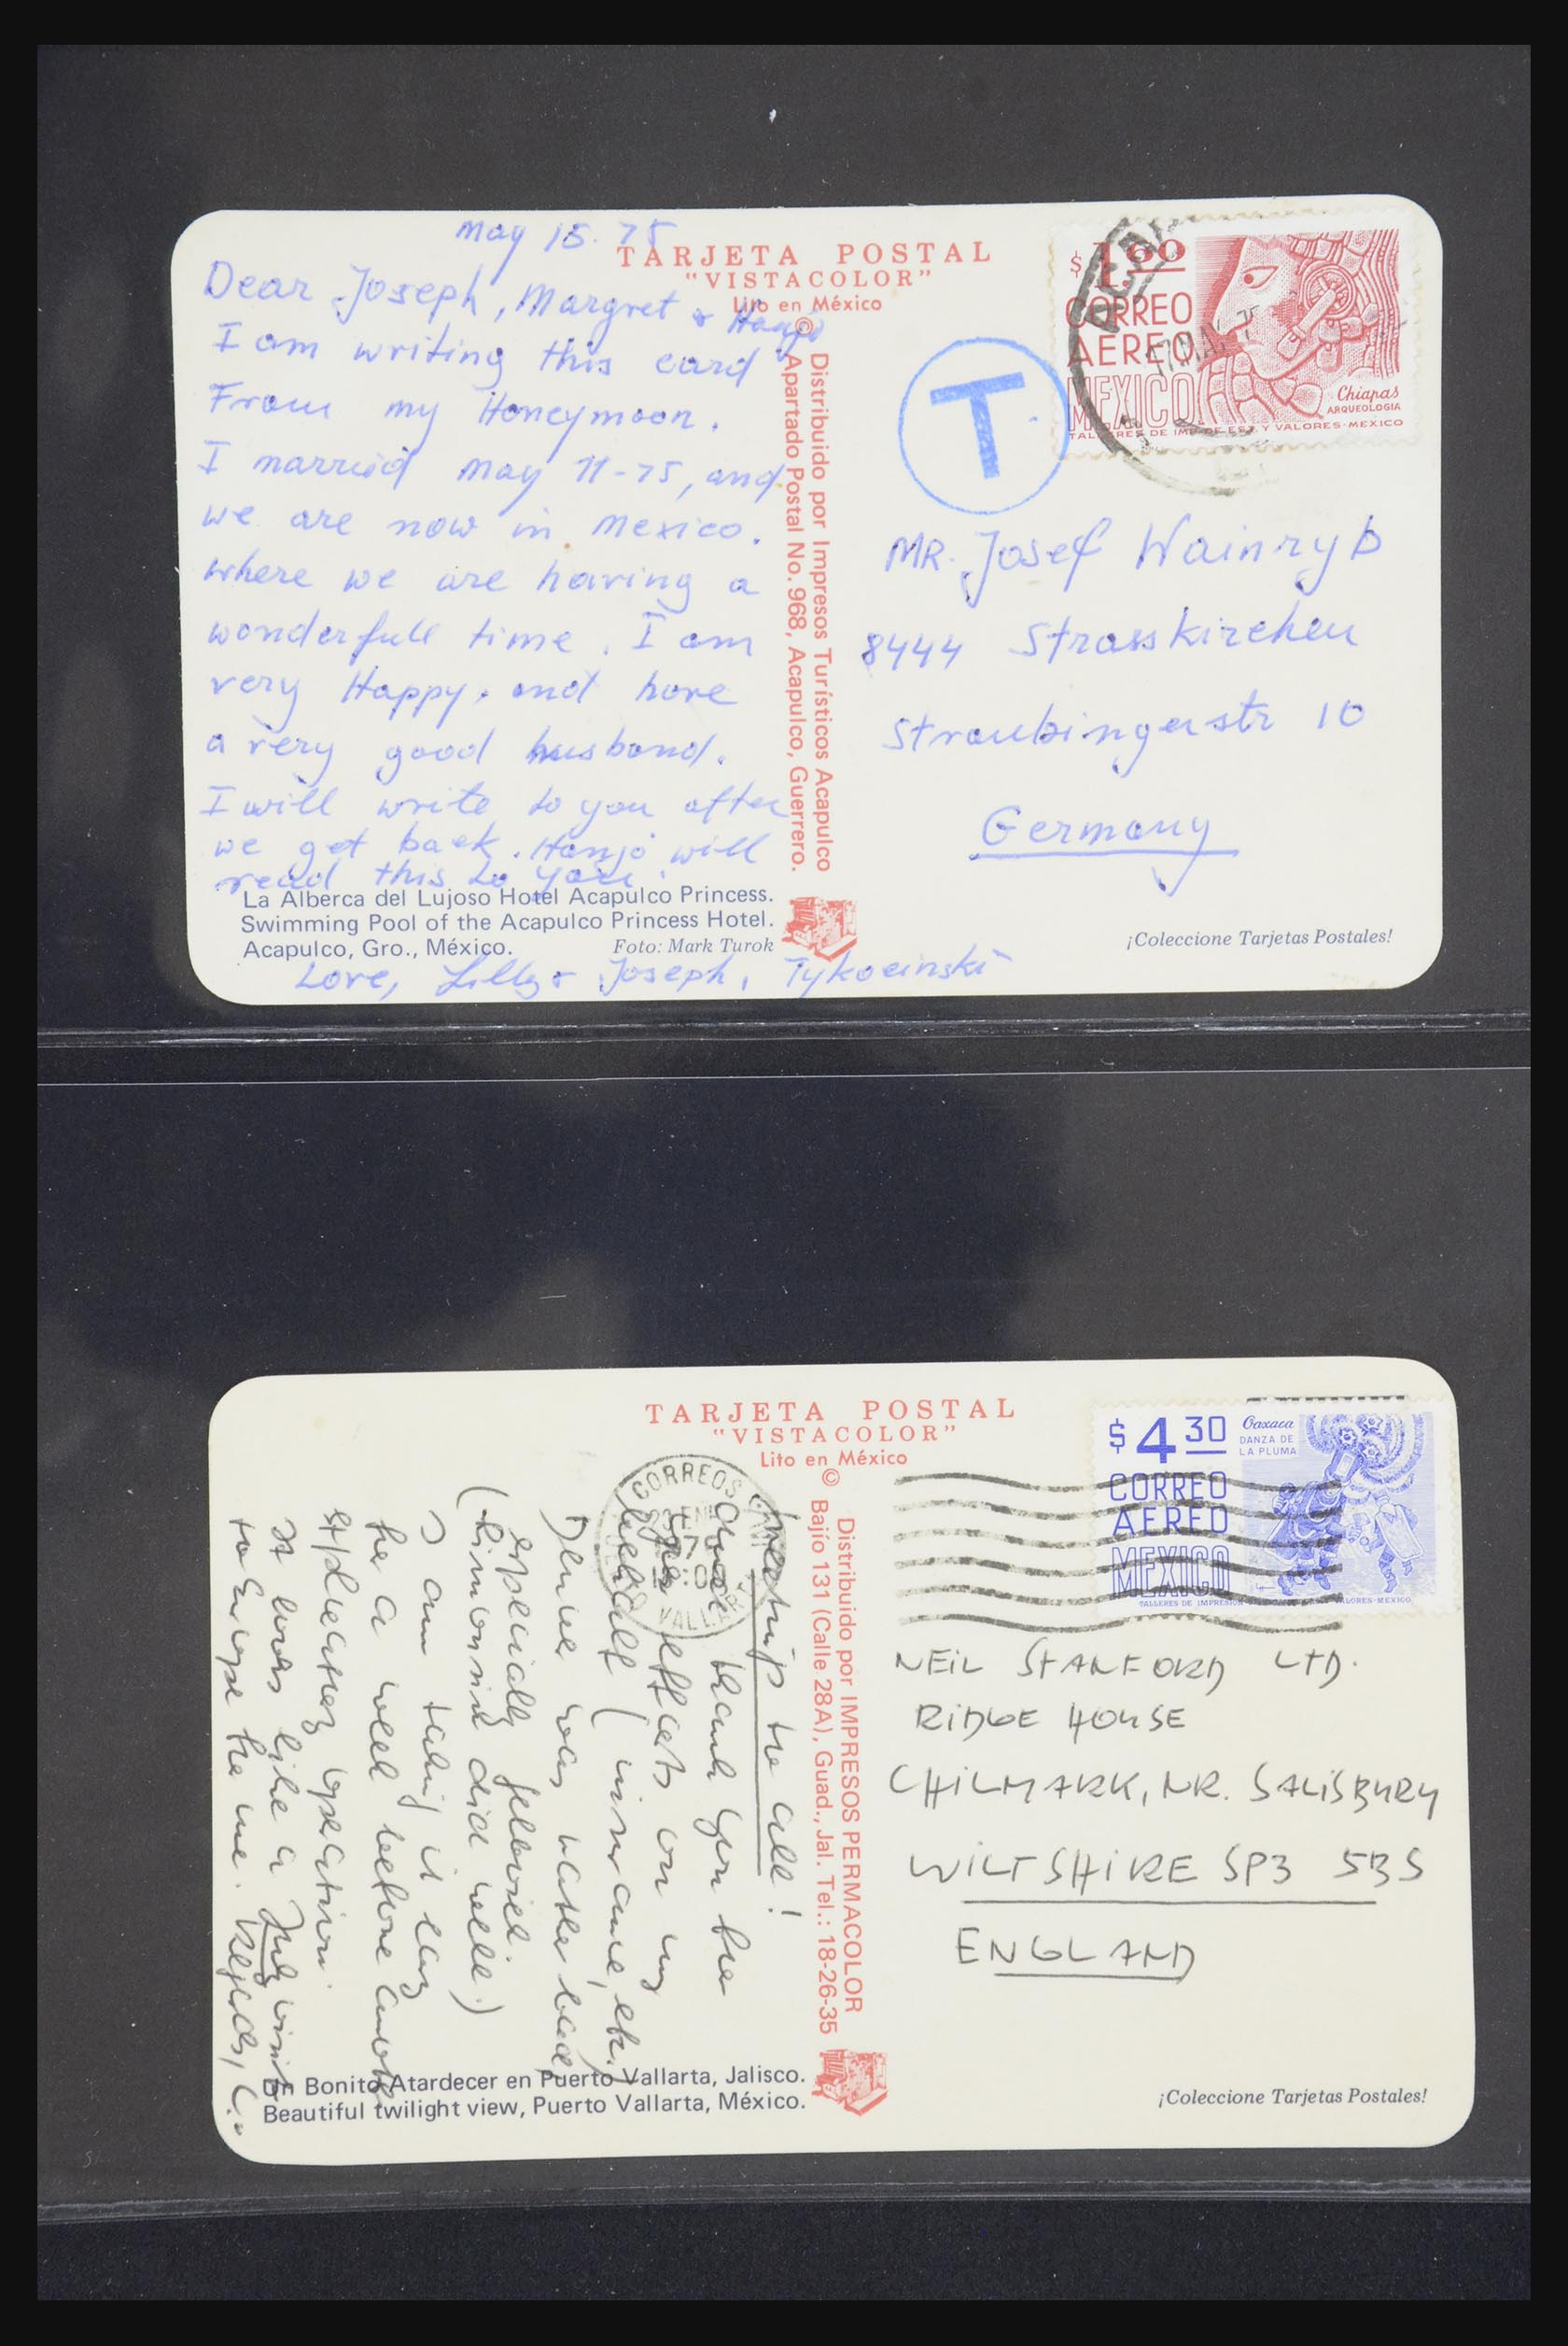 May 15. 75
TARJETA POSTAL
"VISTACOLOR"
Lito en México
©
Dear Joseph, Margret & Hanjo
I am writing this card
From my Honeymoon.
I married May 11-75, and
we are now in Mexico.
where we are having a
wonderfull time. I am
very Happy. and have
a very good husband.
I will write to you after
we get back. Hanjo will
read this to you.
La Alberca del Lujoso Hotel Acapulco Princess.
Swimming Pool of the Acapulco Princess Hotel.
Acapulco, Gro., México. Foto: Mark Turok
Love, Lilly & Joseph, Tykocinski
Distribuido por Impresos Turísticos Acapulco
Apartado Postal No. 968, Acapulco, Guerrero.
$1.60
CORREO
AEREO
MEXICO
Chiapas
ARQUEOLOGIA
TALLERES DE IMP. DE EST. Y VALORES-MEXICO
T
MR. Josef Wainryb
8444 Strasskirchen
Straubingerstr 10
Germany
¡Coleccione Tarjetas Postales!
TARJETA POSTAL
"VISTACOLOR"
Lito en México
©
Distribuido por IMPRESOS PERMACOLOR
Bajío 131 (Calle 28A), Guad., Jal. Tel.: 18-26-35
CORREOS
$4.30
Oaxaca
DANZA DE
LA PLUMA
CORREO
AEREO
MEXICO
TALLERES DE IMPRESION VALORES-MEXICO
NEIL STANFORD LTD.
RIDGE HOUSE
CHILMARK, NR. SALISBURY
WILTSHIRE SP3 5BS
ENGLAND
thank you for
efforts on my
behalf (insurance, etc.)
was rather bad,
especially
did well.)
I am taking it easy
for a week before
operation.
It looks like a July visit
to Europe for me. Regards,
Un Bonito Atardecer en Puerto Vallarta, Jalisco.
Beautiful twilight view, Puerto Vallarta, México.
¡Coleccione Tarjetas Postales!